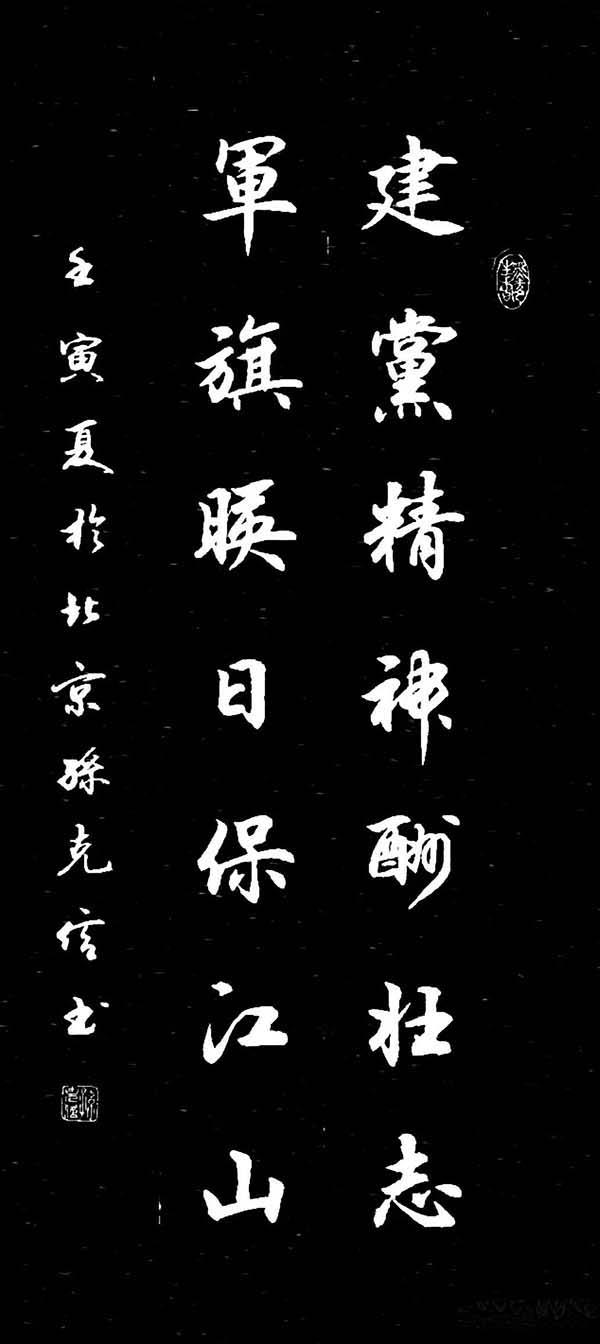 建黨精神酬壮志
軍旗暎日保江山
壬寅夏於北京孫克信书